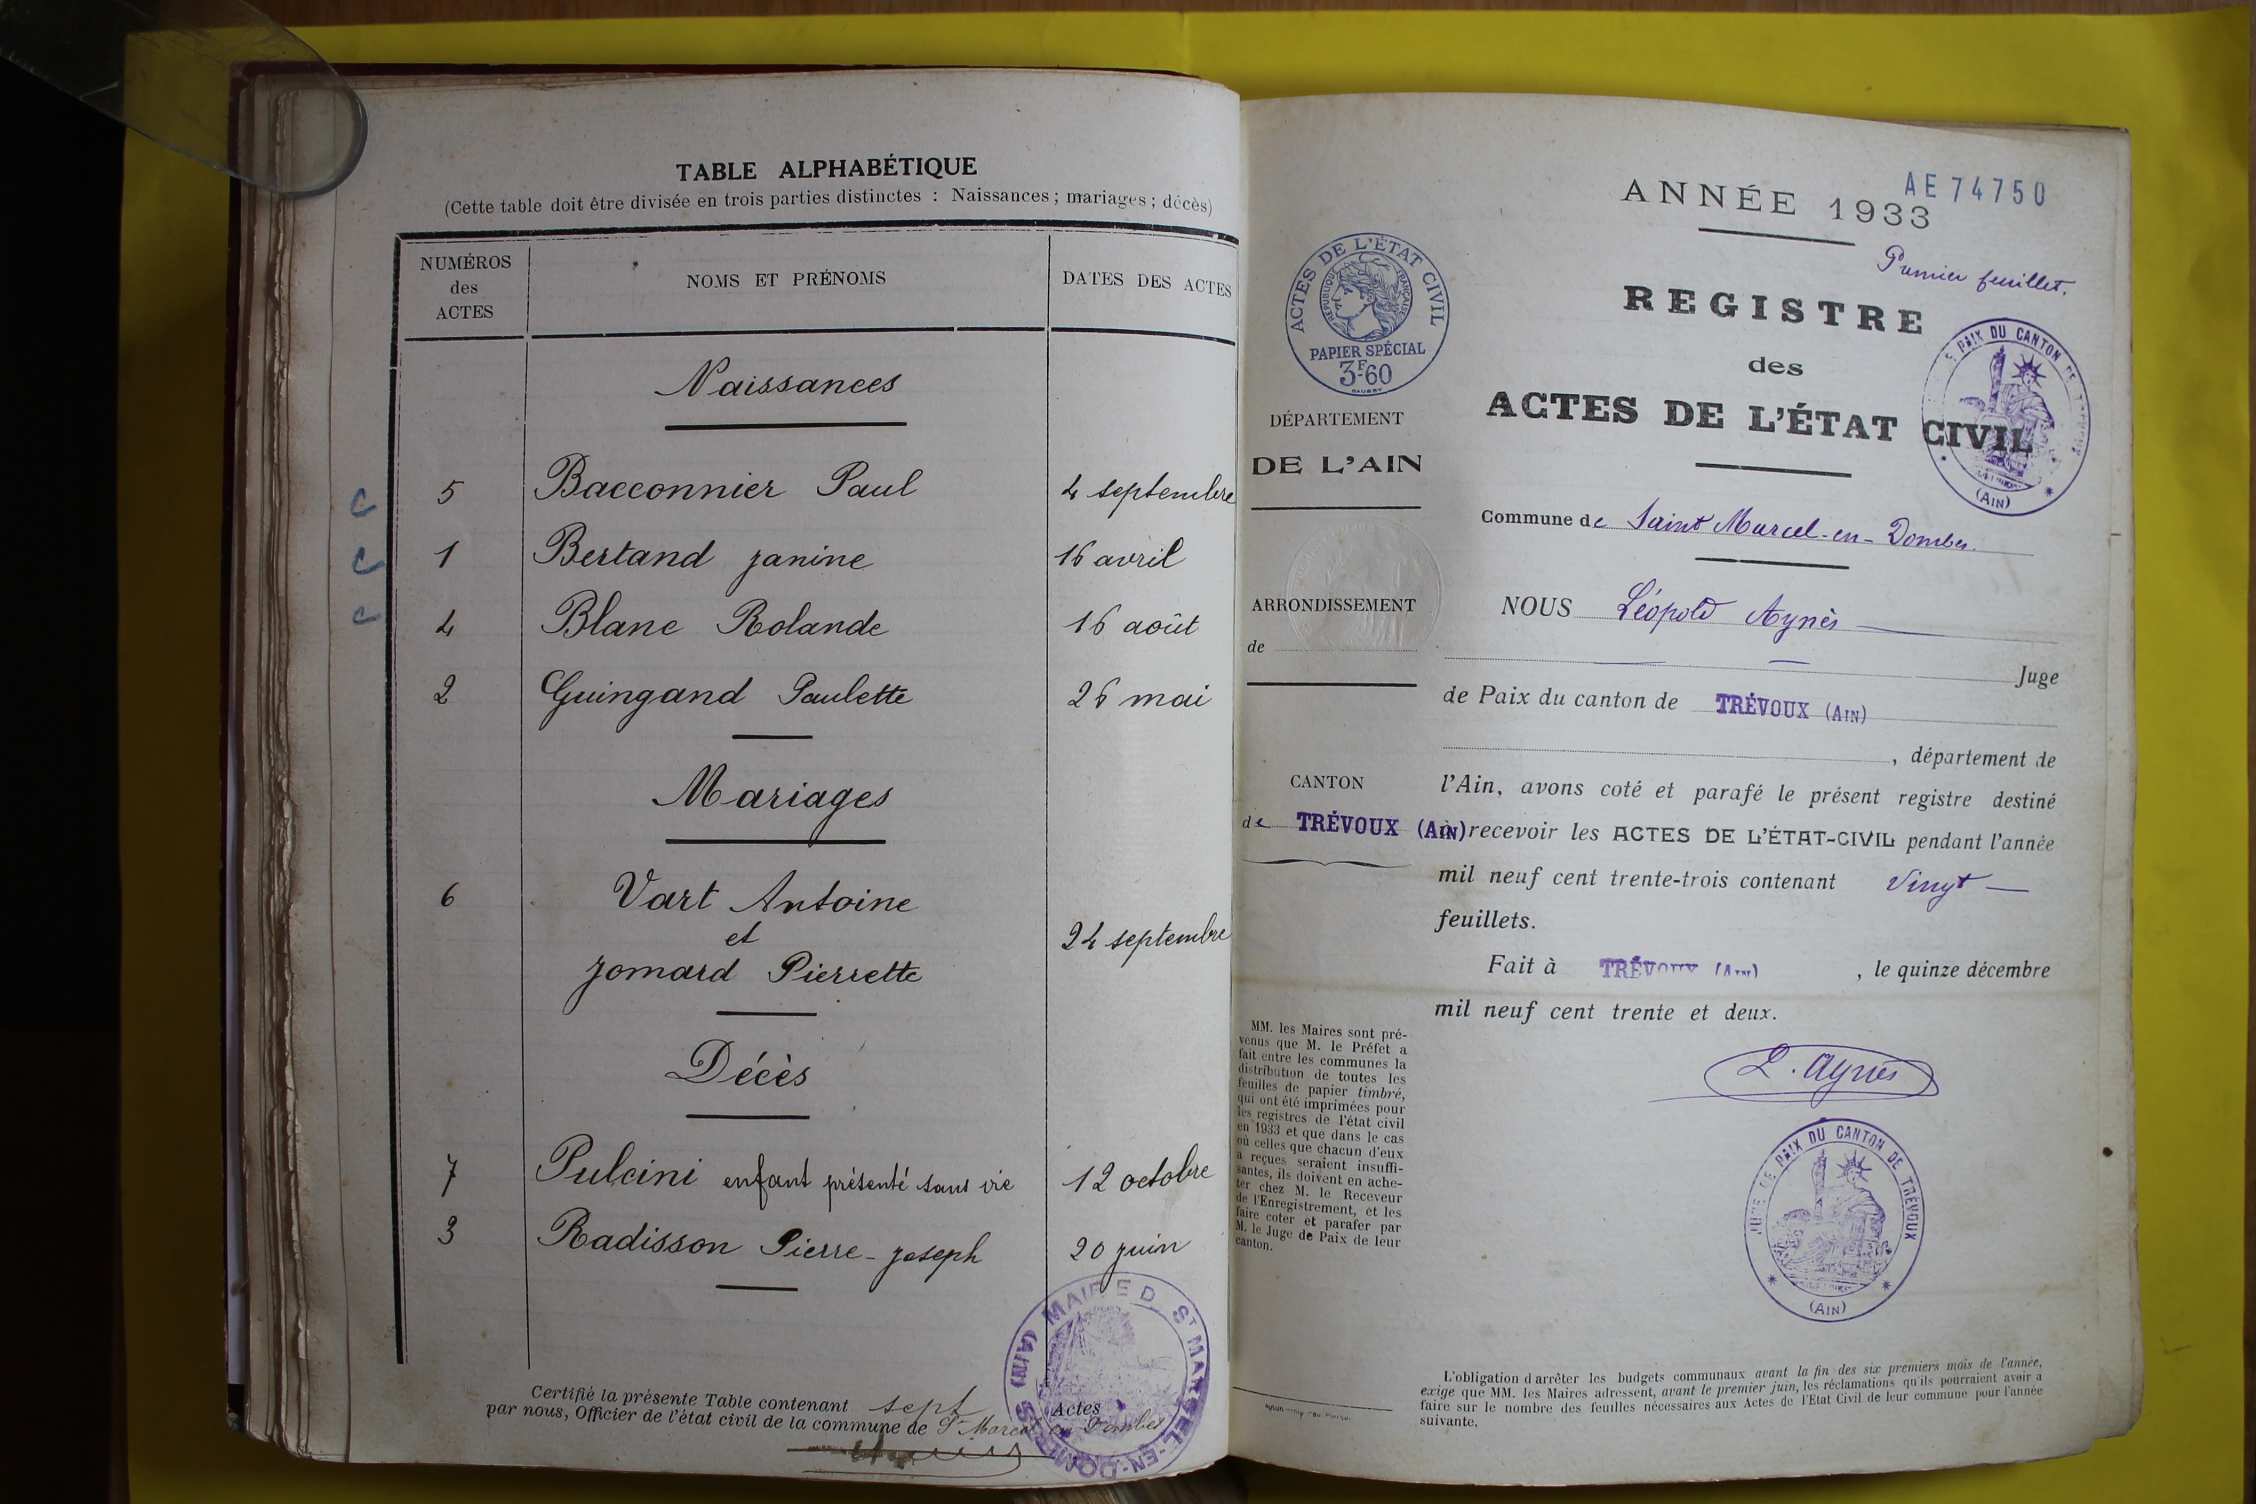 TABLE ALPHABÉTIQUE
(Cette table doit être divisée en trois parties distinctes : Naissances ; mariages ; décès)
NUMÉROS des ACTES
NOMS ET PRÉNOMS
DATES DES ACTES
Naissances
c 5 Bacconnier Paul 4 septembre
c 1 Bertand Janine 16 avril
c 4 Blanc Rolande 16 août
2 Guingand Paulette 26 mai
Mariages
6 Vart Antoine
et
24 septembre
Jomard Pierrette
Décès
7 Pulcini enfant présenté sans vie 12 octobre
3 Radisson Pierre-Joseph 20 juin
MAIRIE D ST MARCEL-EN-DOMBES (AIN)
Certifié la présente Table contenant sept Actes
par nous, Officier de l'état civil de la commune de St Marcel en Dombes
AE 74750
ANNÉE 1933
Premier feuillet.
REGISTRE
des
ACTES DE L'ÉTAT CIVIL
ACTES DE L'ÉTAT CIVIL
RÉPUBLIQUE FRANÇAISE
PAPIER SPÉCIAL
3F-60
DE PAIX DU CANTON DE
(AIN)
DÉPARTEMENT
DE L'AIN
ARRONDISSEMENT
de
CANTON
de TRÉVOUX (AIN)
Commune de Saint Marcel-en-Dombes.
NOUS Léopold Aynès
Juge
de Paix du canton de TRÉVOUX (AIN)
, département de
l'Ain, avons coté et parafé le présent registre destiné
à recevoir les ACTES DE L'ÉTAT-CIVIL pendant l'année
mil neuf cent trente-trois contenant Vingt
feuillets.
Fait à TRÉVOUX (AIN) , le quinze décembre
mil neuf cent trente et deux.
L. Aynès
JUGE DE PAIX DU CANTON DE TRÉVOUX
(AIN)
MM. les Maires sont pré-
venus que M. le Préfet a
fait entre les communes la
distribution de toutes les
feuilles de papier timbré,
qui ont été imprimées pour
les registres de l'état civil
en 1933 et que dans le cas
où celles que chacun d'eux
a reçues seraient insuffi-
santes, ils doivent en ache-
ter chez M. le Receveur
de l'Enregistrement, et les
faire coter et parafer par
M. le Juge de Paix de leur
canton.
L'obligation d'arrêter les budgets communaux avant la fin des six premiers mois de l'année,
exige que MM. les Maires adressent, avant le premier juin, les réclamations qu'ils pourraient avoir à
faire sur le nombre des feuilles nécessaires aux Actes de l'Etat Civil de leur commune pour l'année
suivante.